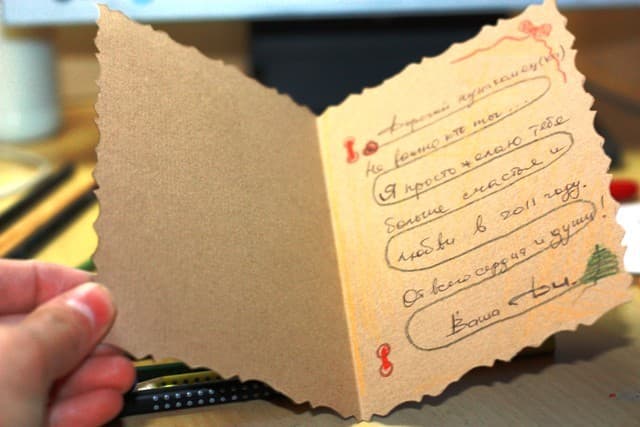 Дорогой кунгямец(ка)
Не важно кто ты...
Я просто желаю тебе
больше счастья и
любви в 2011 году.
От всего сердца и души!
Ваша